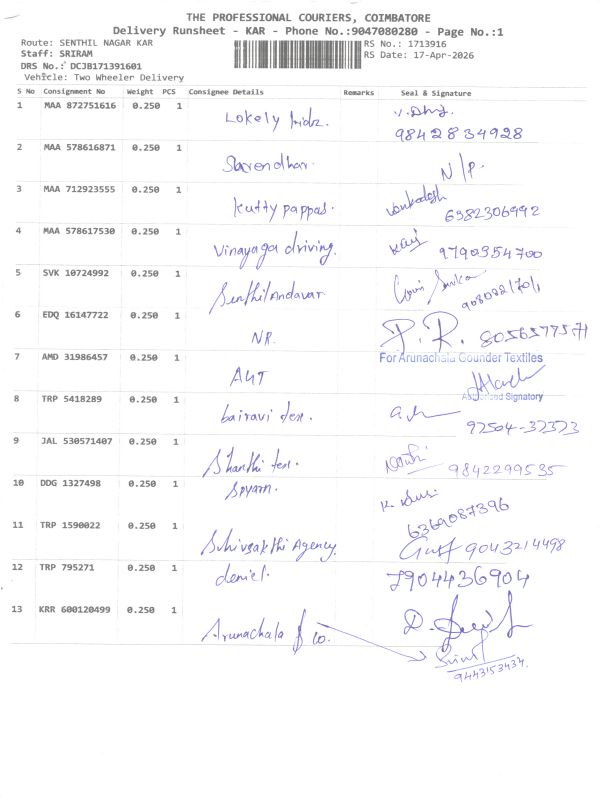 THE PROFESSIONAL COURIERS, COIMBATORE
Delivery Runsheet - KAR - Phone No.:9047080280 - Page No.:1
Route: SENTHIL NAGAR KAR
RS No.: 1713916
Staff: SRIRAM
RS Date: 17-Apr-2026
DRS No.: DCJB171391601
Vehicle: Two Wheeler Delivery
S No Consignment No Weight PCS Consignee Details Remarks Seal & Signature
1 MAA 872751616 0.250 1 Lokely kidz.
9842834928
2 MAA 578616871 0.250 1 N/P.
3 MAA 712923555 0.250 1 Kutty pappas. Venkadesh
6382306992
4 MAA 578617530 0.250 1 Vinayaga driving. Kavi
9790354700
5 SVK 10724992 0.250 1 Senthilandavar
6 EDQ 16147722 0.250 1 NR. P. R.
7 AMD 31986457 0.250 1 AGT For Arunachala Gounder Textiles
Authorised Signatory
8 TRP 5418289 0.250 1 bairavi tex.
92504-32323
9 JAL 530571407 0.250 1 Shanthi tex.
9842299535
10 DDG 1327498 0.250 1 Spyarn.
6369087396
11 TRP 1590022 0.250 1 Shivsakthi Agency.
9043214498
12 TRP 795271 0.250 1 deniel. 7904436904
13 KRR 600120499 0.250 1 Arunachala & co.
9443153434.